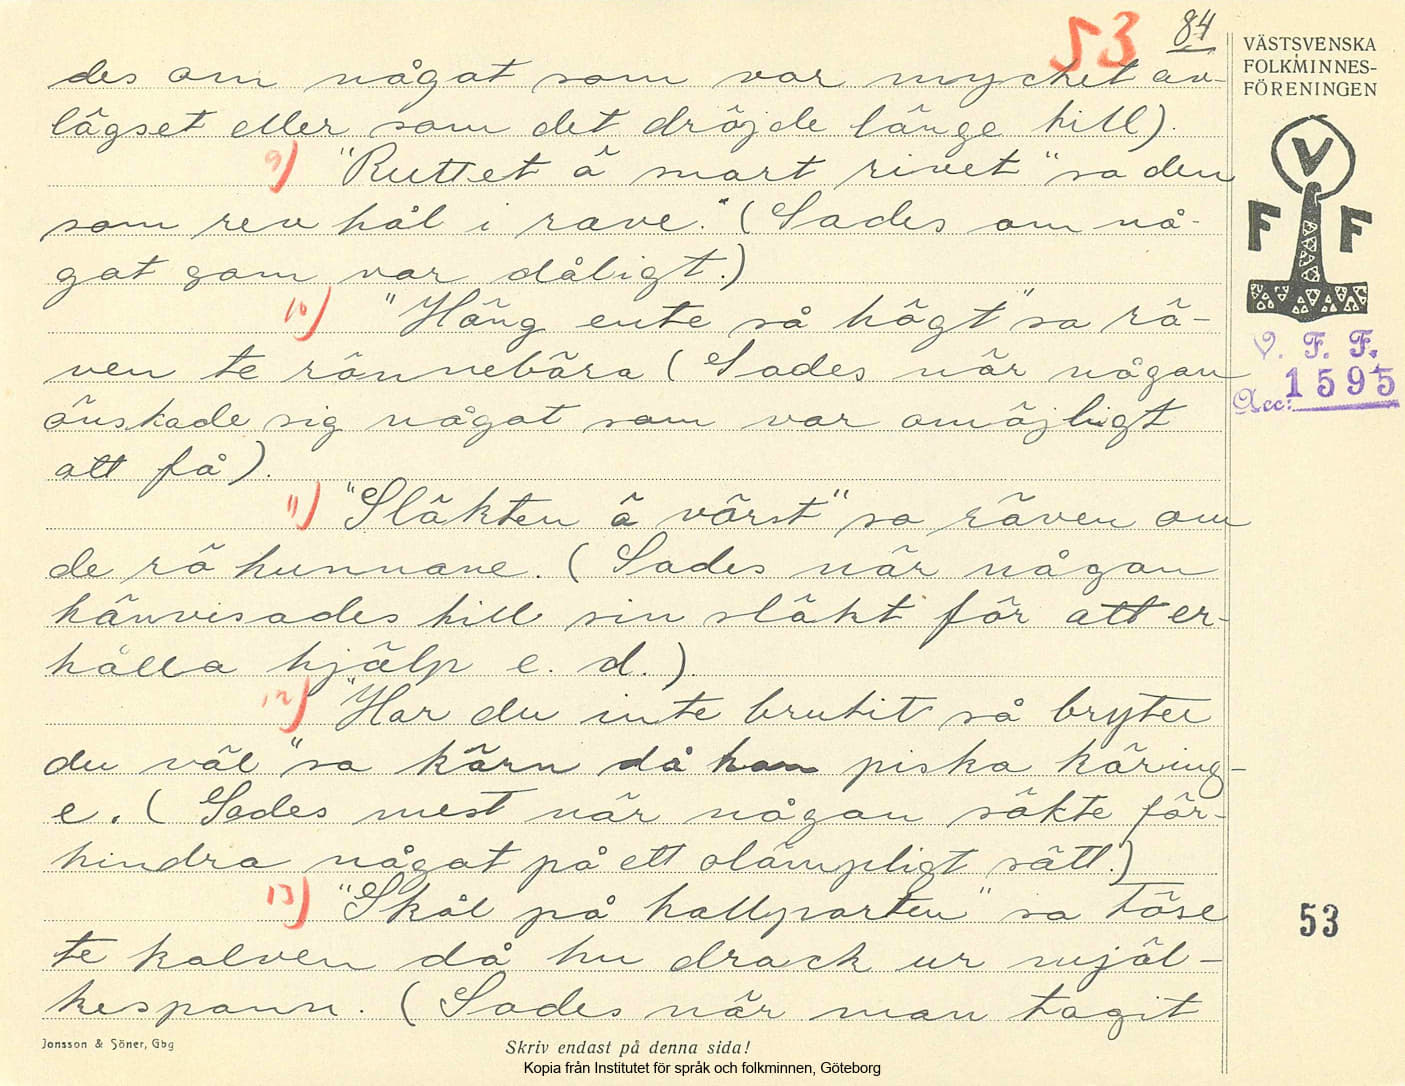 53 84
VÄSTSVENSKA
FOLKMINNES-
FÖRENINGEN
V
F F
V. F. F.
Acc: 1595
des om något som var mycket av-
lägset eller som det dröjde länge till).
9) "Ruttet ä snart rivet" sa den
som rev hål i rave." (Sades om nå-
got som var dåligt.)
10) "Häng ente så högt" sa rä-
ven te rönnebära (Sades när någon
önskade sig något som var omöjligt
att få).
11) "Släkten ä värst" sa räven om
de rö hunnane. (Sades när någon
hänvisades till sin släkt för att er-
hålla hjälp e. d.)
12) "Har du inte brutit så bryter
du väl" sa kärn då han piska käring-
e. (Sades mest när någon sökte för-
hindra något på ett olämpligt sätt.)
13) "Skål på hallparten" sa töse
te kalven då hu drack ur mjöl-
kespann. (Sades när man tagit
53
Jonsson & Söner, Gbg
Skriv endast på denna sida!
Kopia från Institutet för språk och folkminnen, Göteborg